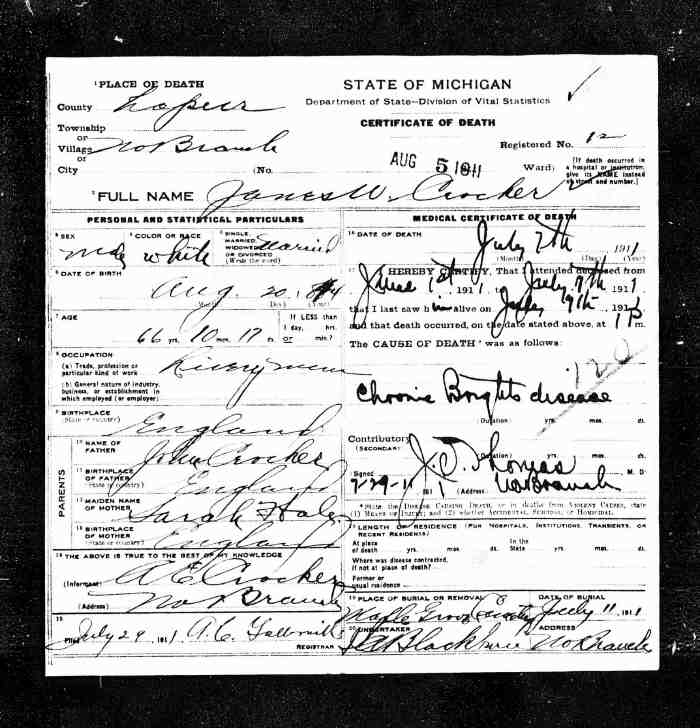 ¹PLACE OF DEATH
County Lapeer
Township
or
Village No Branch
or
City (No.
STATE OF MICHIGAN
Department of State—Division of Vital Statistics
CERTIFICATE OF DEATH
Registered No. 12
AUG 5 1911
Ward:
[If death occurred in a hospital or institution, give its NAME instead of street and number.]
²FULL NAME James W. Crocker
PERSONAL AND STATISTICAL PARTICULARS
³SEX male
⁴COLOR OR RACE white
⁵SINGLE, MARRIED, WIDOWED OR DIVORCED (Write the word) Married
⁶DATE OF BIRTH
Aug. 20,
(Month) (Day) (Year)
⁷AGE
66 yrs. 10 mos. 17 ds.
If LESS than 1 day, hrs. or min.?
⁸OCCUPATION
(a) Trade, profession or particular kind of work Liveryman
(b) General nature of industry, business, or establishment in which employed (or employer)
⁹BIRTHPLACE
(State or country) England
PARENTS
¹⁰NAME OF FATHER John Crocker
¹¹BIRTHPLACE OF FATHER (State or country) England
¹²MAIDEN NAME OF MOTHER Sarah
¹³BIRTHPLACE OF MOTHER (State or country) England
¹⁴THE ABOVE IS TRUE TO THE BEST OF MY KNOWLEDGE
(Informant) A E Crocker
(Address) No Branch
¹⁵
Filed July 29 1911 A. C.
REGISTRAR
MEDICAL CERTIFICATE OF DEATH
¹⁶DATE OF DEATH
July 7th 1911
(Month) (Day) (Year)
¹⁷I HEREBY CERTIFY, That I attended deceased from
June 1st 1911, to July 7th 1911
that I last saw him alive on July 1911
and that death occurred, on the date stated above, at 1 P m.
The CAUSE OF DEATH* was as follows:
120
Chronic Brights disease
(Duration) yrs. mos. ds.
Contributory
(SECONDARY)
(Duration) yrs. mos. ds.
Signed J. D. Thomas M. D.
7-29-11 191 (Address) No Branch
*State the DISEASE CAUSING DEATH, or in deaths from VIOLENT CAUSES, state (1) MEANS OF INJURY; and (2) whether ACCIDENTAL, SUICIDAL, or HOMICIDAL.
¹⁸LENGTH OF RESIDENCE (FOR HOSPITALS, INSTITUTIONS, TRANSIENTS, OR RECENT RESIDENTS.)
At place of death yrs. mos. ds. In the State yrs. mos. ds.
Where was disease contracted, if not at place of death?
Former or usual residence
¹⁹PLACE OF BURIAL OR REMOVAL
DATE OF BURIAL
Maple Grove July 11 1911
²⁰UNDERTAKER
ADDRESS
No Branch